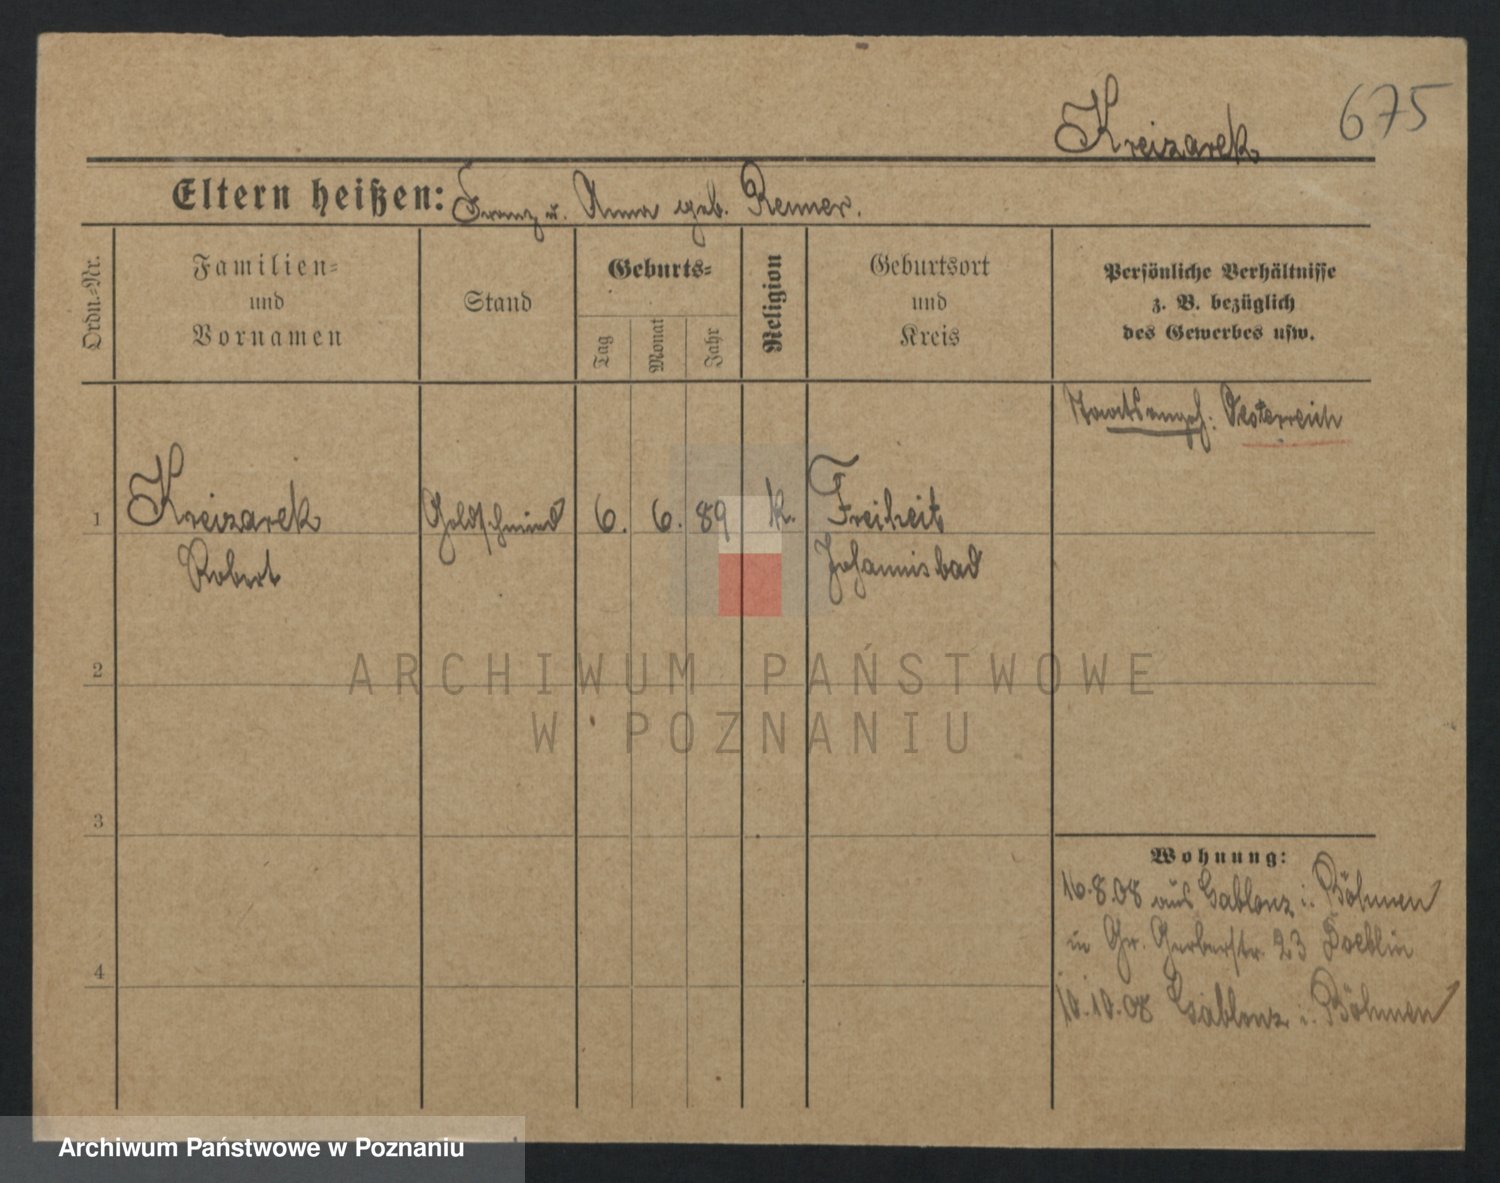 675
Kreizarek
Eltern heißen: Franz u. Anna geb. Renner.
Ordn.=Nr.
Familien=
und
Vornamen
Stand
Geburts=
Tag
Monat
Jahr
Religion
Geburtsort
und
Kreis
Persönliche Verhältnisse
z. B. bezüglich
des Gewerbes usw.
Staatsangeh: Oesterreich
1 Kreizarek Goldschmied 6. 6. 89 k. Freiheit
Robert Johannisbad
2
ARCHIWUM PAŃSTWOWE
W POZNANIU
3
Wohnung:
16.8.08 aus Gablonz i. Böhmen
in Gr. Gerberstr. 23
4
10.10.08 Gablonz i. Böhmen
Archiwum Państwowe w Poznaniu